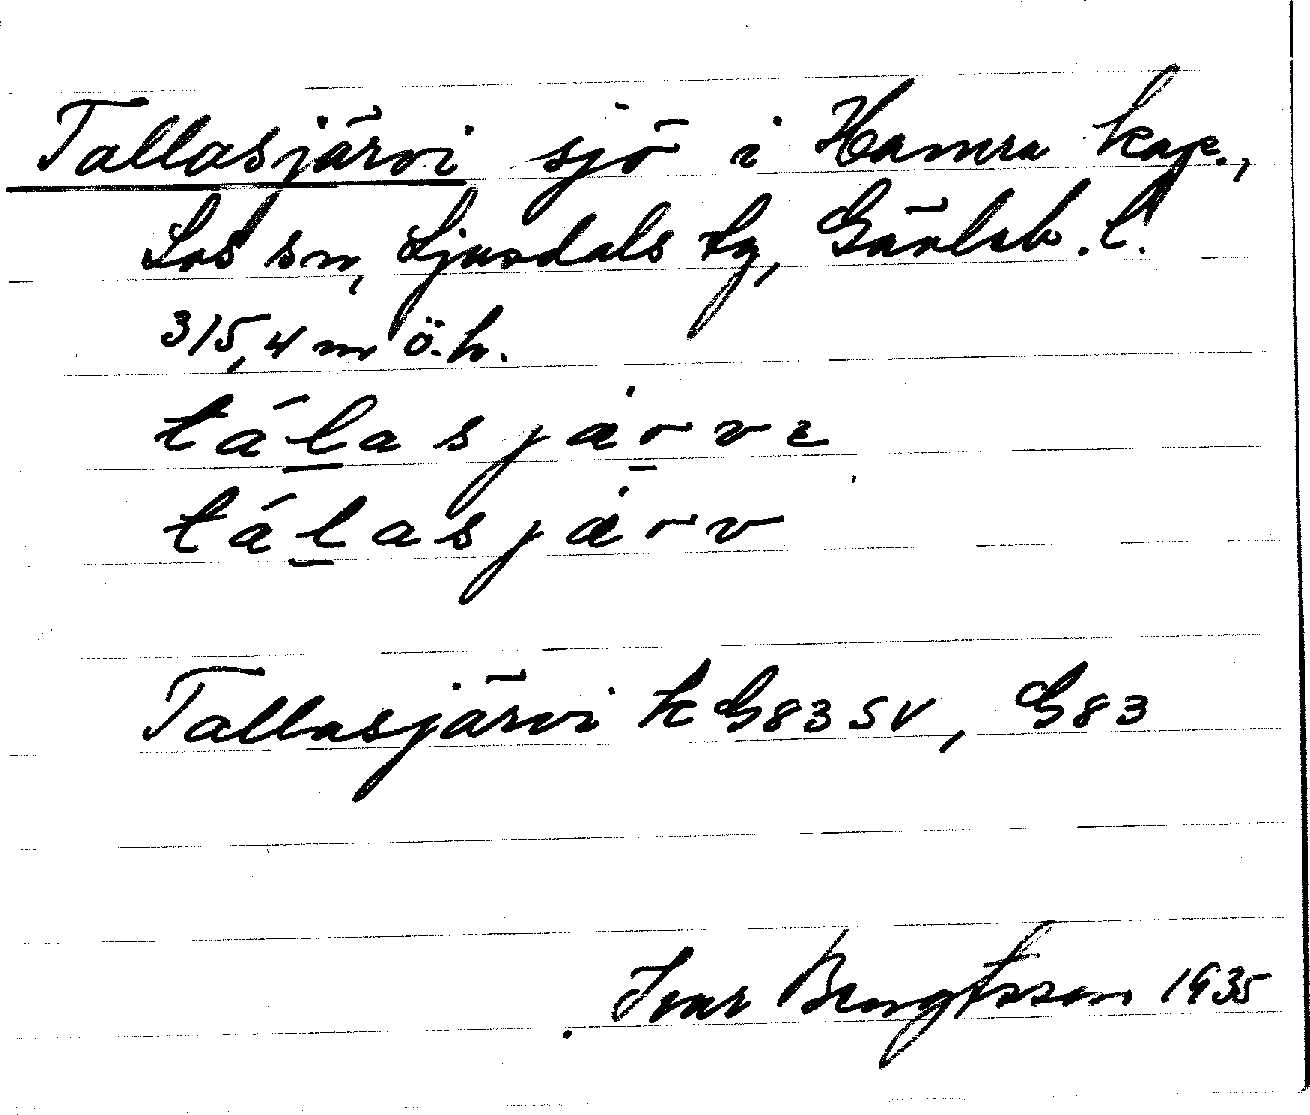 Tallasjärvi sjö i Hamra kap.,
Los sn, Ljusdals tg, Gävleb. l.
315,4 m ö.h.
tálasjärvɩ
tálasjärv
Tallasjärvi k G83SV, G83
Ivar Bengtsson 1935